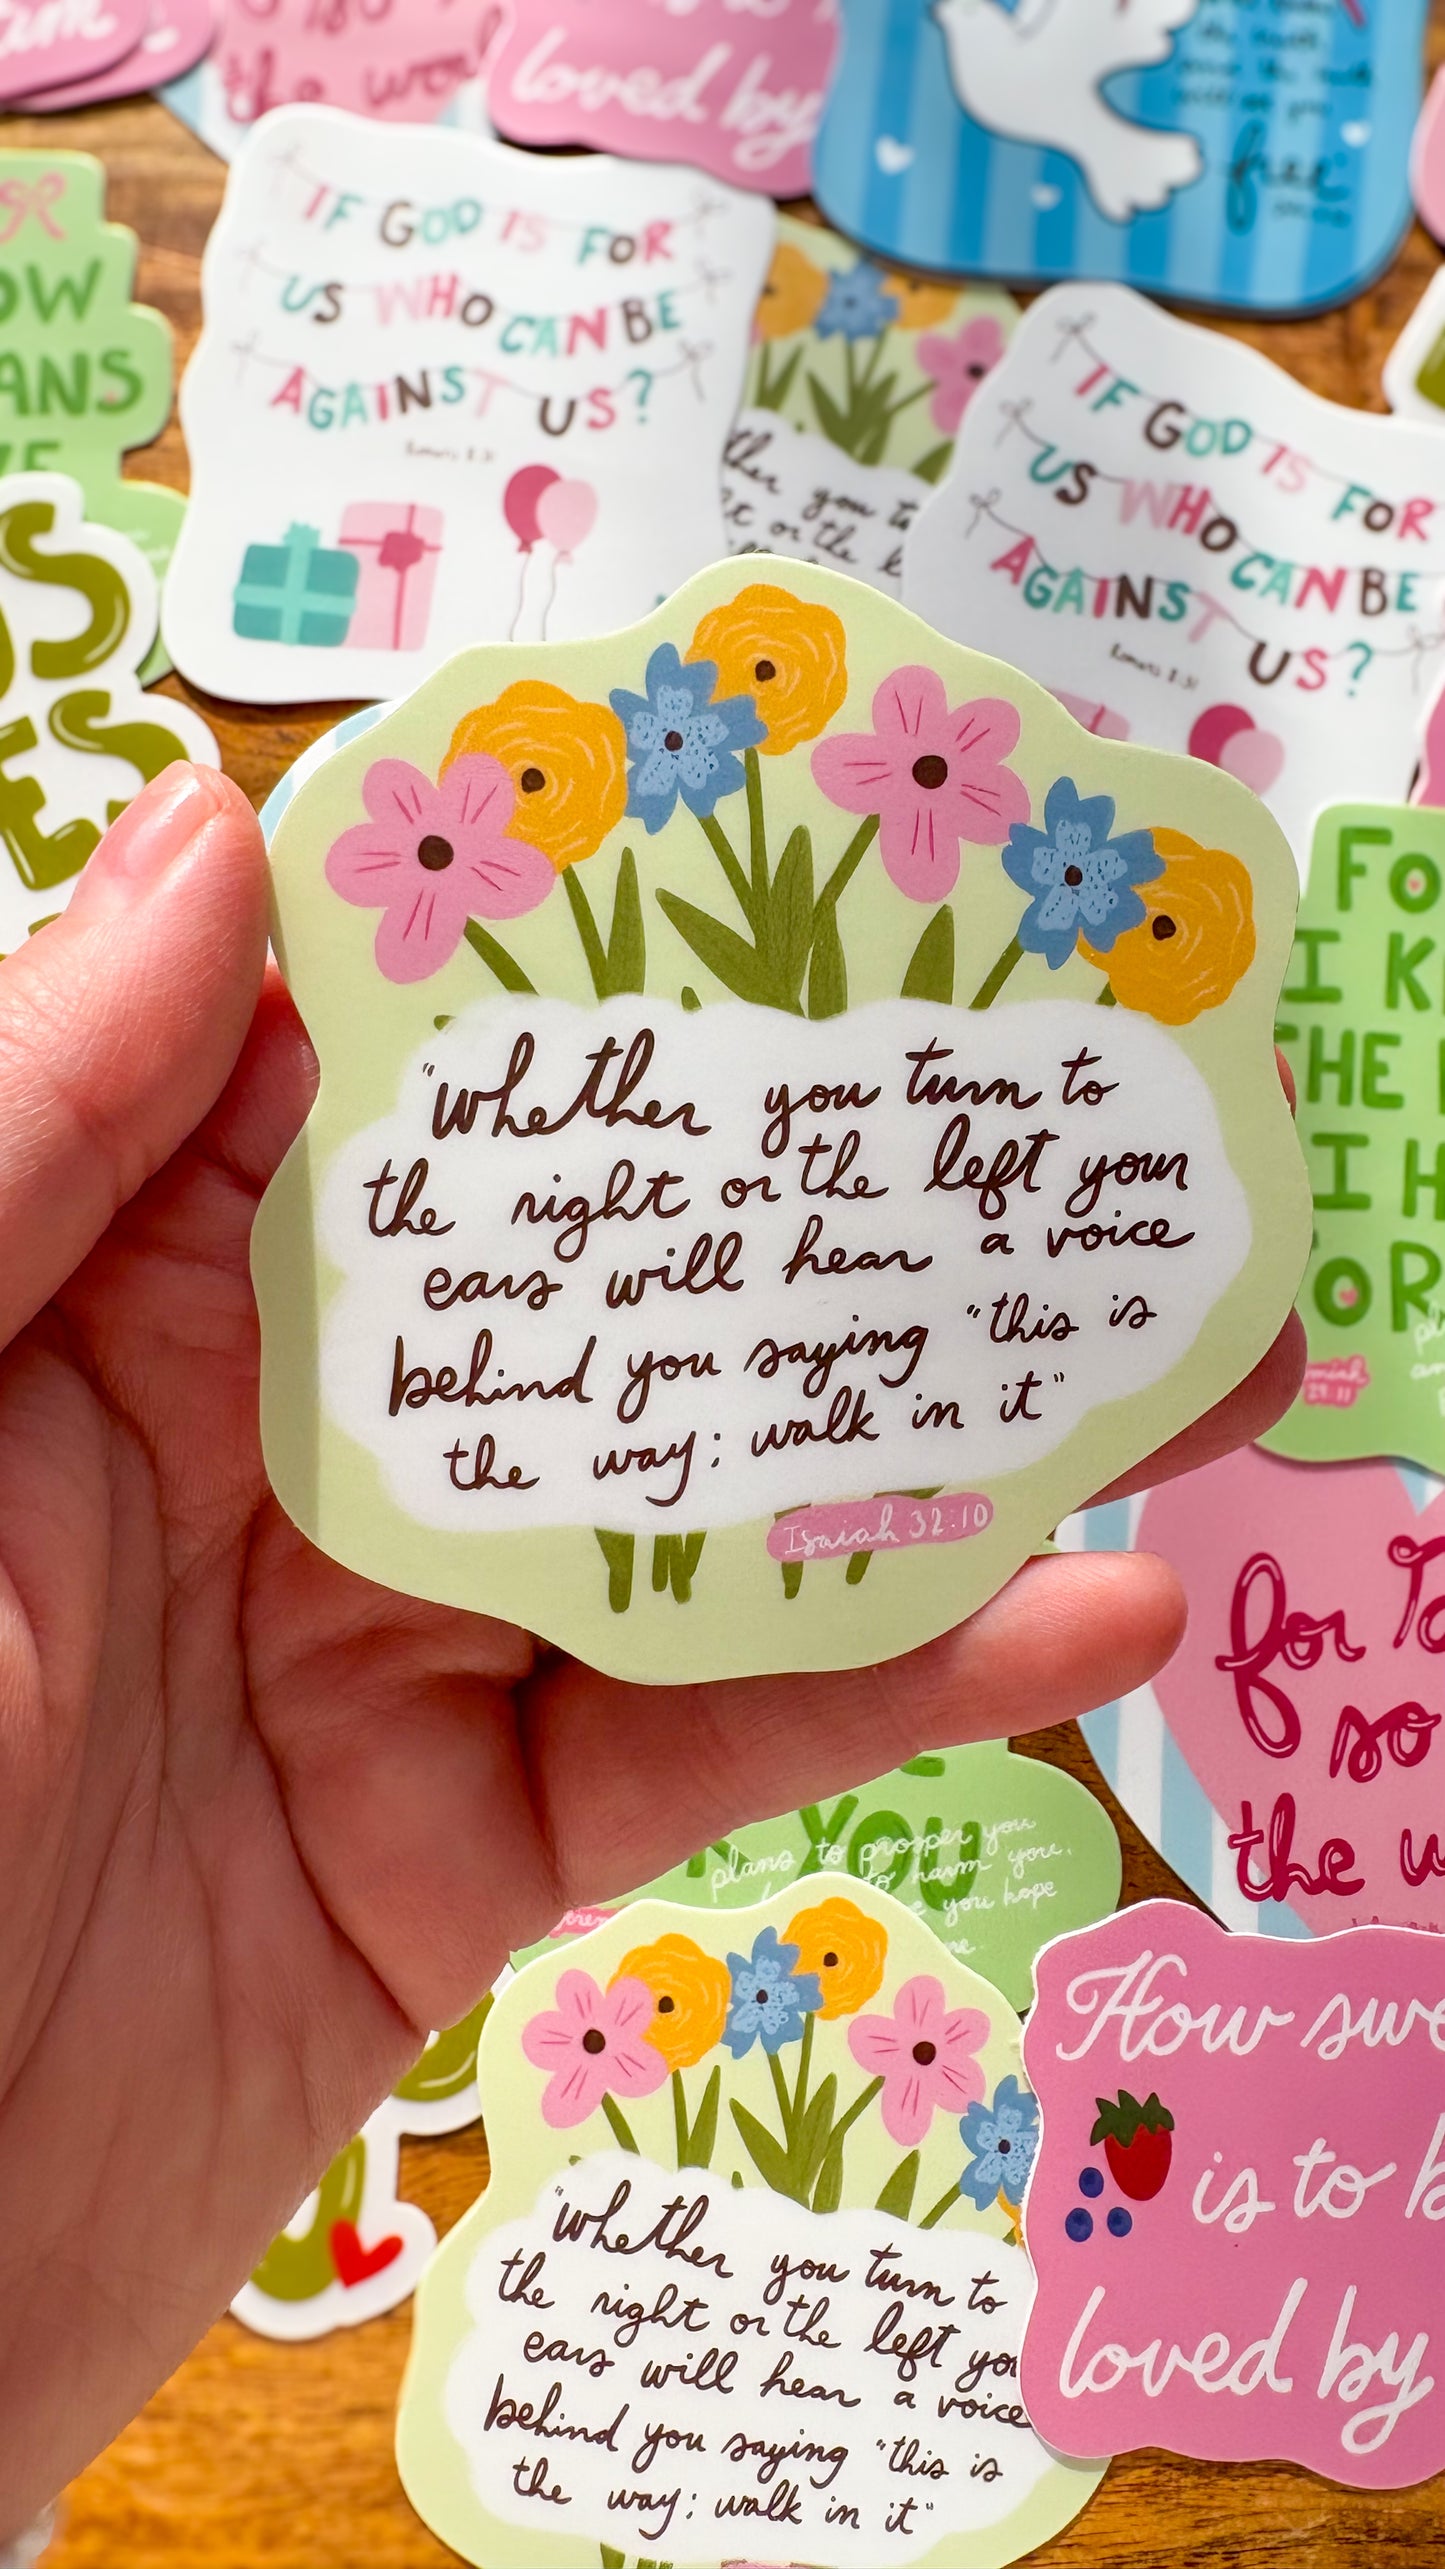 loved by
free
IF GOD IS FOR
US WHO CAN BE
AGAINST US?
Romans 8:31
IF GOD IS FOR
US WHO CAN BE
AGAINST US?
Romans 8:31
OW
ANS
ther you to
or the l
"whether you turn to
the right or the left your
ears will hear a voice
behind you saying "this is
the way; walk in it"
Isaiah 32:10
FO
I K
THE
I H
OR
29:11
for
so
the w
YOU
plans to prosper you
to harm you,
you hope
How swe
is to b
loved by
"whether you turn to
the right or the left you
ears will hear a voice
behind you saying "this is
the way; walk in it"